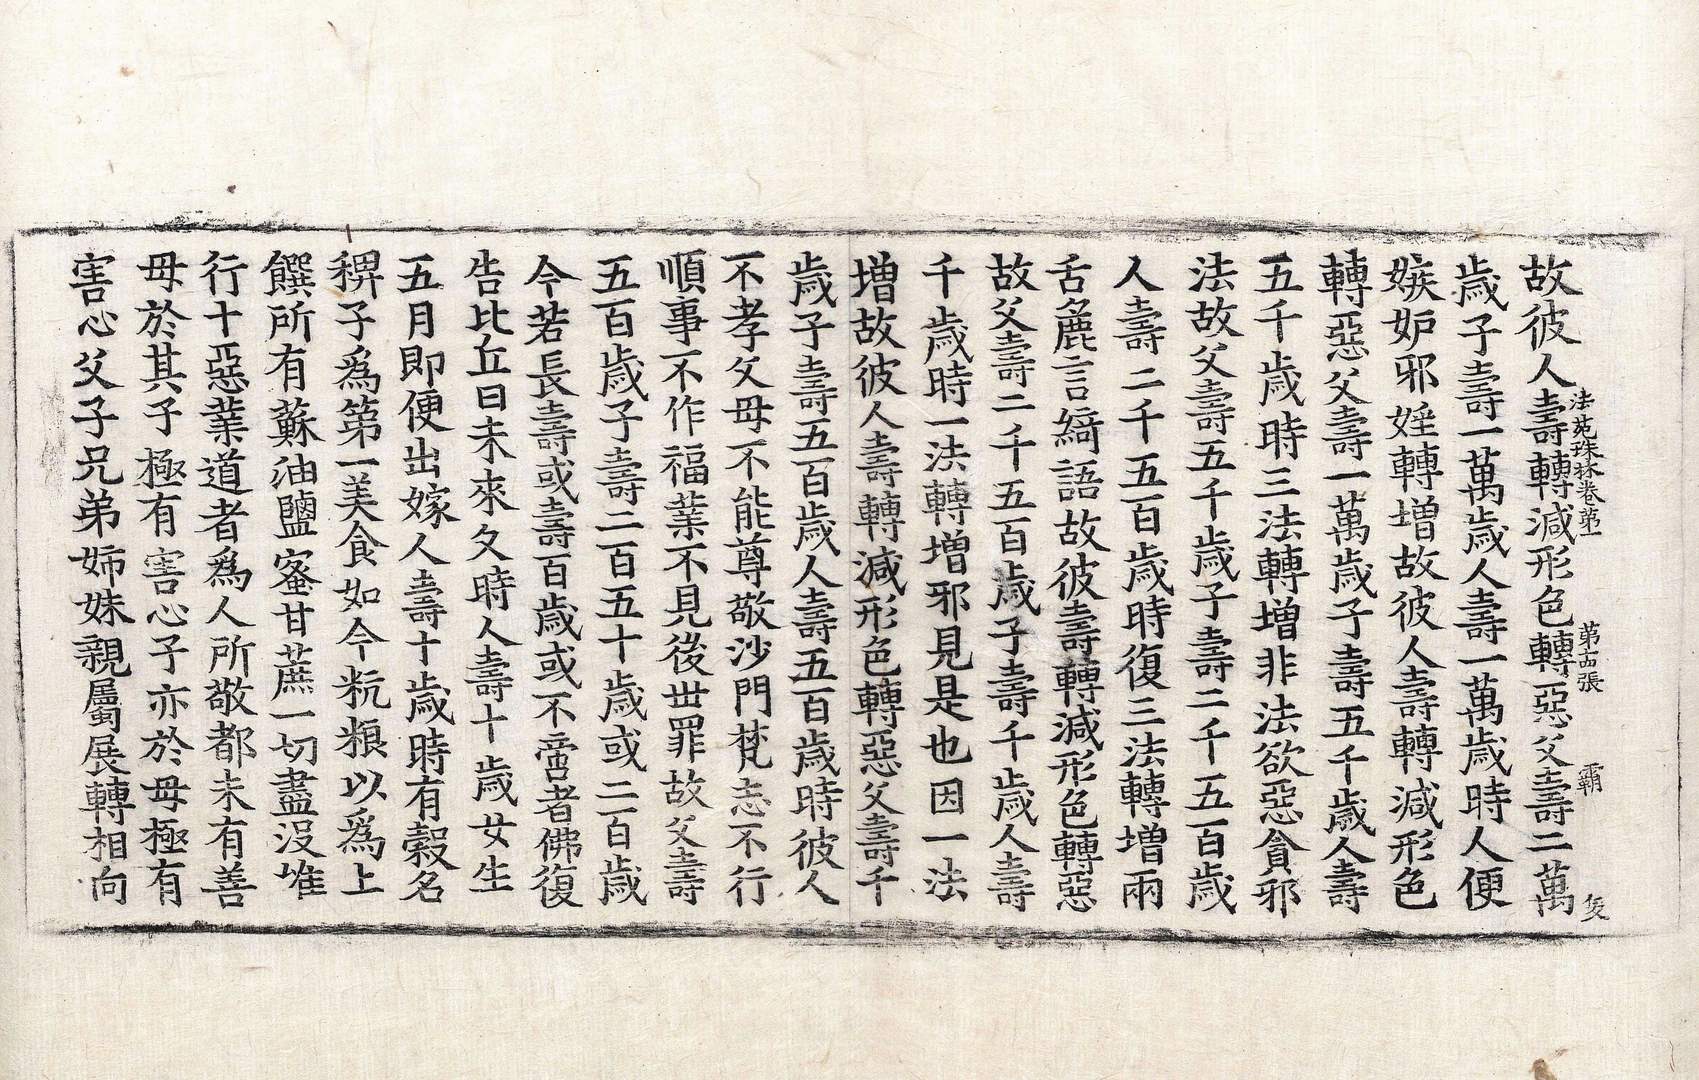 故彼人壽轉減形色轉惡父壽二萬
法苑珠林卷第一 第十四張 霸
歲子壽一萬歲人壽一萬歲時人便
嫉妒邪婬轉增故彼人壽轉減形色
轉惡父壽一萬歲子壽五千歲人壽
五千歲時三法轉增非法欲惡貪邪
法故父壽五千歲子壽二千五百歲
人壽二千五百歲時復三法轉增兩
舌麁言綺語故彼壽轉減形色轉惡
故父壽二千五百歲子壽千歲人壽
千歲時一法轉增邪見是也因一法
增故彼人壽轉減形色轉惡父壽千
歲子壽五百歲人壽五百歲時彼人
不孝父母不能尊敬沙門梵志不行
順事不作福業不見後世罪故父壽
五百歲子壽二百五十歲或二百歲
今若長壽或壽百歲或不啻者佛復
告比丘曰未來久時人壽十歲女生
五月即便出嫁人壽十歲時有穀名
稗子爲第一美食如今粇粮以爲上
饌所有蘇油鹽蜜甘蔗一切盡沒唯
行十惡業道者爲人所敬都未有善
母於其子極有害心子亦於母極有
害心父子兄弟姉妹親屬展轉相向